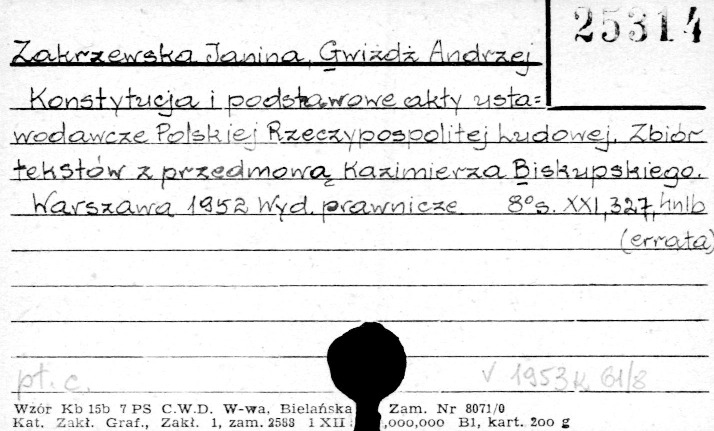 25314
Zakrzewska Janina, Gwiżdż Andrzej
Konstytucja i podstawowe akty usta=
wodawcze Polskiej Rzeczypospolitej Ludowej. Zbiór
tekstów z przedmową Kazimierza Biskupskiego.
Warszawa 1952 Wyd. prawnicze 8° s. XXI, 327, nlb
(errata)
pt. c. v 1953 k 61/8
Wzór Kb 15b 7 PS C.W.D. W-wa, Bielańska Zam. Nr 8071/0
Kat. Zakł. Graf., Zakł. 1, zam. 2588 1 XII ,000,000 B1, kart. 200 g